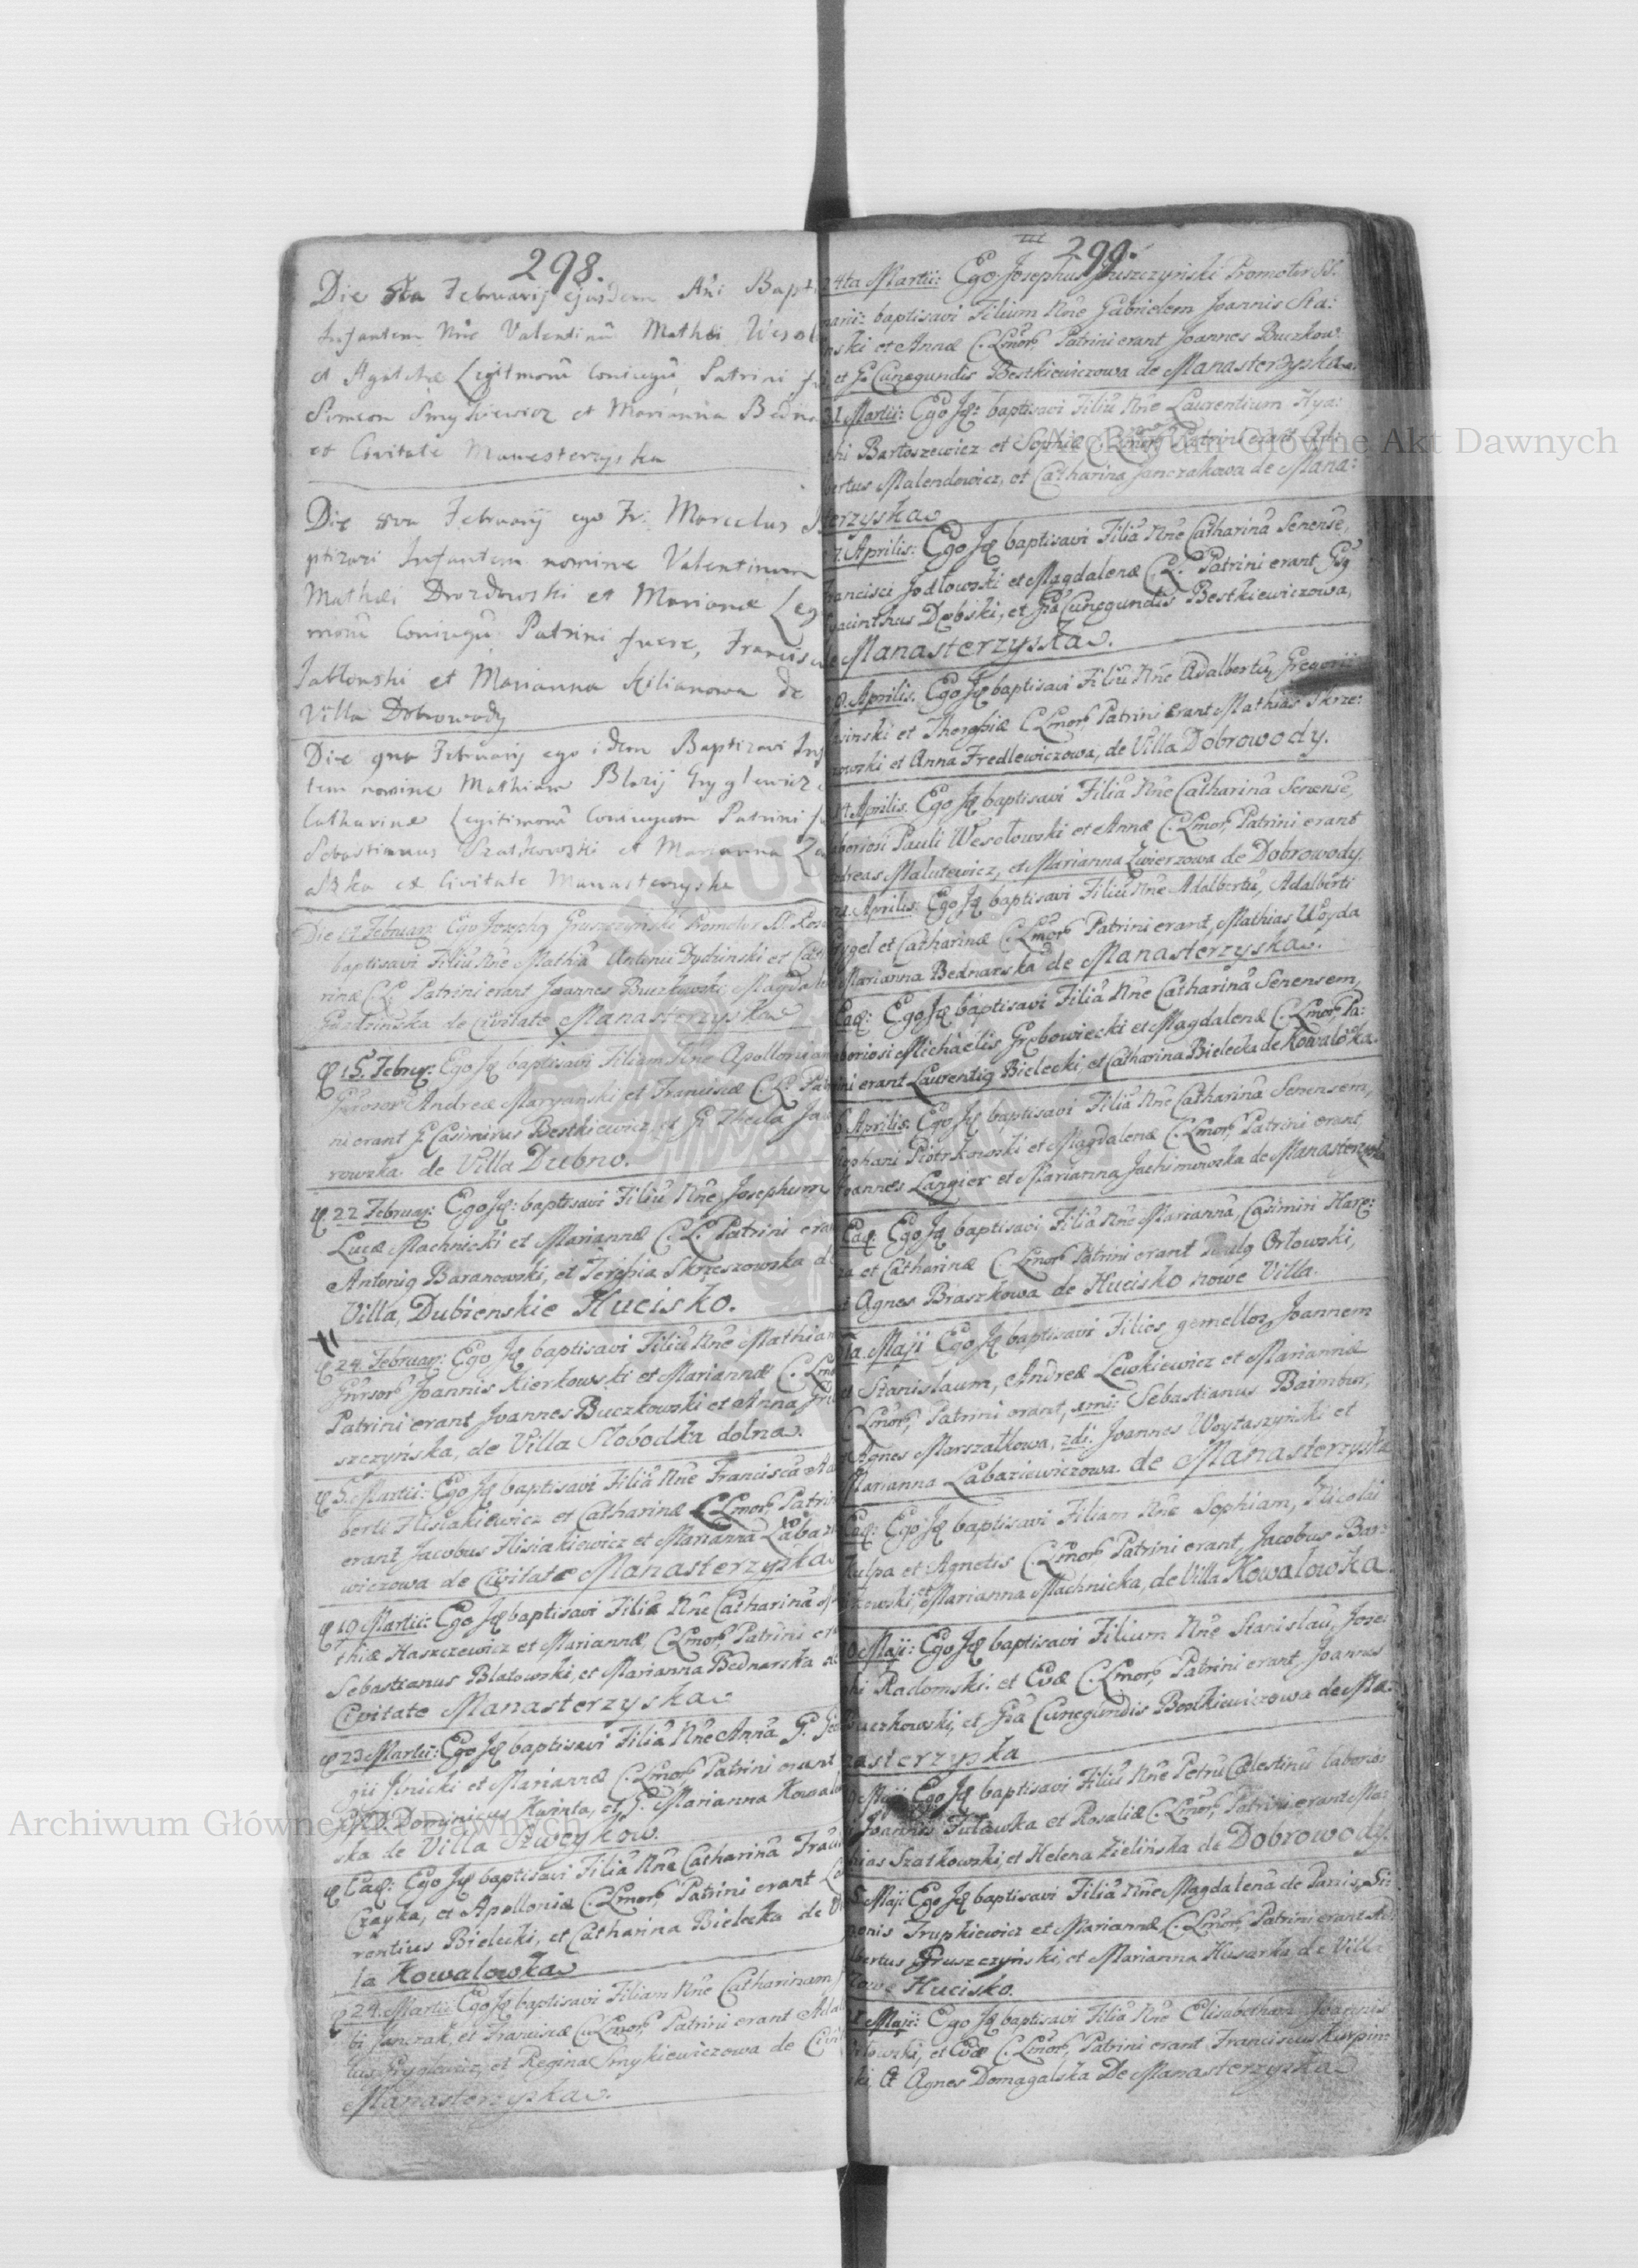 298.
Die 5ta Februarij ejusdem Ani Bapt
Infantem Nne Valentinũ Mathei Wesol
et Agathæ Legitmorũ Coniugũ, Patrini fu
Simeon Smykiewicz et Marianna Bedna
ex Civitate Manesterzyska
Die Februarij ego Fr. Marcelus
ptizavi Infantem nomine Valentinum
Mathæi Drozdowski et Marianæ Leg
morũ Coniugũ Patrini fuere, Francis
Jabłonski et Marianna Kilianowa de
Villa Dobrowody
Die 9na Februarij ego idem Baptizavi Inf
tem nomine Mathiam Blasij Gryglewicz
Catharinæ Legitimorũ Coniugum Patrini f
Sebastianus Szatkowski et Marianna
alska ex Civitate Manasterzyska
Die 17 Februar: Ego Josephq Gruszczynski Promotor SS. Ros
baptisavi Filiũ Nne Mathiã Antonii Dydzinski et Cat
rinæ C. L. Patrini erant Joannes Buczkowski Magda
de Civitate Manasterzyska
15. Februar: Ego Jq baptisavi Filiam Nne Apolloniam
Gnrosor Andreæ Maryanski et Franciscæ C. L. Pat
ni erant G. Casimirus Bestkiewicz et G. Thecla Ja
rowska de Villa Dubno.
22 Februar: Ego Jq: baptisavi Filiũ Nne Josephum
Lucæ Machnicki et Mariannæ C. L. Patrini eran
Antoniq Baranowski, et Teresia Skrzeszowska d
Villa, Dubienskie Hucisko.
24. Februar: Ego Jq baptisavi Filiũ Nne Mathiam
Gnrsor Joannis Kierkowski et Mariannæ C. Lmo
Patrini erant Joannes Buczkowski et Anna Gru
szczyńska, de Villa Slobodka dolna.
5. Martii: Ego Jq baptisavi Filiã Nne Franciscã Ada
berti Hisiakiewicz et Catharinæ C. Lmor, Patrin
erant Jacobus Hisiakiewicz et Marianna Labaze
wiczowa de Civitate Manasterzyska
10 Martii: Ego Jq baptisavi Filiã Nne Catharinã Ma
thiæ Haszczewicz et Mariannæ, C. Lmor, Patrini er
Sebastianus Blatowski, et Marianna Bednarska de
Civitate Manasterzyska
23 Martii: Ego Jq baptisavi Filiã Nne Annã G. Geor
gii Jlnicki et Mariannæ C. Lmor, Patrini erant
Dominicus Kwinta, et G. Marianna Kowal
ska de Villa Szweykow.
Eaq: Ego Jq baptisavi Filiã Nne Catharinã Fran
Czayka, et Apolloniæ C. Lmor, Patrini erant La
rentius Bielecki, et Catharina Bielecka de Vi
la Kowalowka
24. Martii Ego Jq baptisavi Filiam Nne Catharinam
bi Janczak, et Franciscæ C. Lmor, Patrini erant Adal
tus Gryglewicz, et Regina Smykiewiczowa de Civit
Manasterzyska.
299.
24ta Martii: Ego Josephus Gruszczyński Promotor SS.
sarii: baptisavi Filium Nne Gabrielem Joannis Sta:
nski et Annæ C. Lmor, Patrini erant Joannes Buczkow:
et Ga Cunegundis Bestkiewiczowa de Manasterzyska.
31 Martii: Ego Jq: baptisavi Filiũ Nne Laurentium Hya:
thi Bartoszewicz et Sophiæ C. Lmor, Patrini erant Adal:
bertus Malendowicz, et Catharina Janczakowa de Mana:
sterzyska
7. Aprilis: Ego Jq baptisavi Filiã Nne Catharinã Senense,
Francisci Jodłowski et Magdalenæ C. L. Patrini erant Gsq
yacinthus Dębski, et Gsa Cunegundis Bestkiewiczowa,
de Manasterzyska.
8. Aprilis. Ego Jq baptisavi Filiũ Nne Adalbertũ, Gregorii
sinski et Theresiæ C. Lmor, Patrini erant Mathias Skrze:
zowski et Anna Fredlewiczowa, de Villa Dobrowody.
17 Aprilis. Ego Jq baptisavi Filiã Nne Catharinã Senense,
aboriosi Pauli Wesołowski et Annæ C. Lmor, Patrini erant
dreas Malutewicz, et Marianna Zwierzowa de Dobrowody.
21. Aprilis: Ego Jq baptisavi Filiũ Nne Adalbertũ, Adalberti
ygel et Catharinæ C. Lmor, Patrini erant, Mathias Woyda
Marianna Bednarska de Manasterzyska.
Eaq: Ego Jq baptisavi Filiã Nne Catharinã Senensem,
aboriosi Michaelis Grębowiecki et Magdalenæ C. Lmor Pa:
ini erant Laurentiq Bielecki, et Catharina Bielecka de Kowalowka.
Aprilis: Ego Jq baptisavi Filiã Nne Catharinã Senensem,
Stephani Piotrkowski et Magdalenæ C. Lmor, Patrini erant,
Joannes Langier et Marianna Jachimowska de Manasterzyska
Eaq: Ego Jq baptisavi Filiã Nne Mariannã, Casimiri Harę:
za et Catharinæ C. Lmor, Patrini erant Paulq Orłowski,
et Agnes Braszkowa de Hucisko nowe Villa.
1a. Maji Ego Jq baptisavi Filios gemellos, Joannem
et Stanislaum, Andreæ Lewkiewicz et Mariannæ
C. Lmor, Patrini erant, 1mi: Sebastianus Baimbur,
et Agnes Marszałkowa, 2di: Joannes Woytaszyński et
Marianna Labaziewiczowa. de Manasterzyska
Eaq: Ego Jq baptisavi Filiam Nne Sophiam, Nicolai
Kulpa et Agnetis C. Lmor, Patrini erant, Jacobus Bar:
zewski, et Marianna Machnicka, de Villa Kowalowka.
Maji: Ego Jq baptisavi Filium Nne Stanislaũ, Jose:
phi Radomski. et Evæ C. Lmor, Patrini erant, Joannes
Buczkowski, et Gsa Cunegundis Bestkiewiczowa de Ma:
nasterzyska
Maji Ego Jq baptisavi Filiũ Nne Petrũ Cælestinũ laborio:
si Joannis Puławka et Rosaliæ C. Lmor, Patrini erant Ma:
thias Szatkowski, et Helena Zielińska de Dobrowody.
5 Maji Ego Jq baptisavi Filiã Nne Magdalenã de Panis, Si:
monis Trupkiewicz et Mariannæ, C. Lmor, Patrini erant Ad:
albertus Gruszczyński, et Marianna Husarka de Villa
Nowe Hucisko.
Maji: Ego Jq baptisavi Filiã Nne Elisabetham Joannis
Orłowski, et Evæ C. Lmor, Patrini erant Franciscus Kurpin:
ski, & Agnes Domagalska De Manasterzyska
Archiwum Główne Akt Dawnych
Archiwum Główne Akt Dawnych